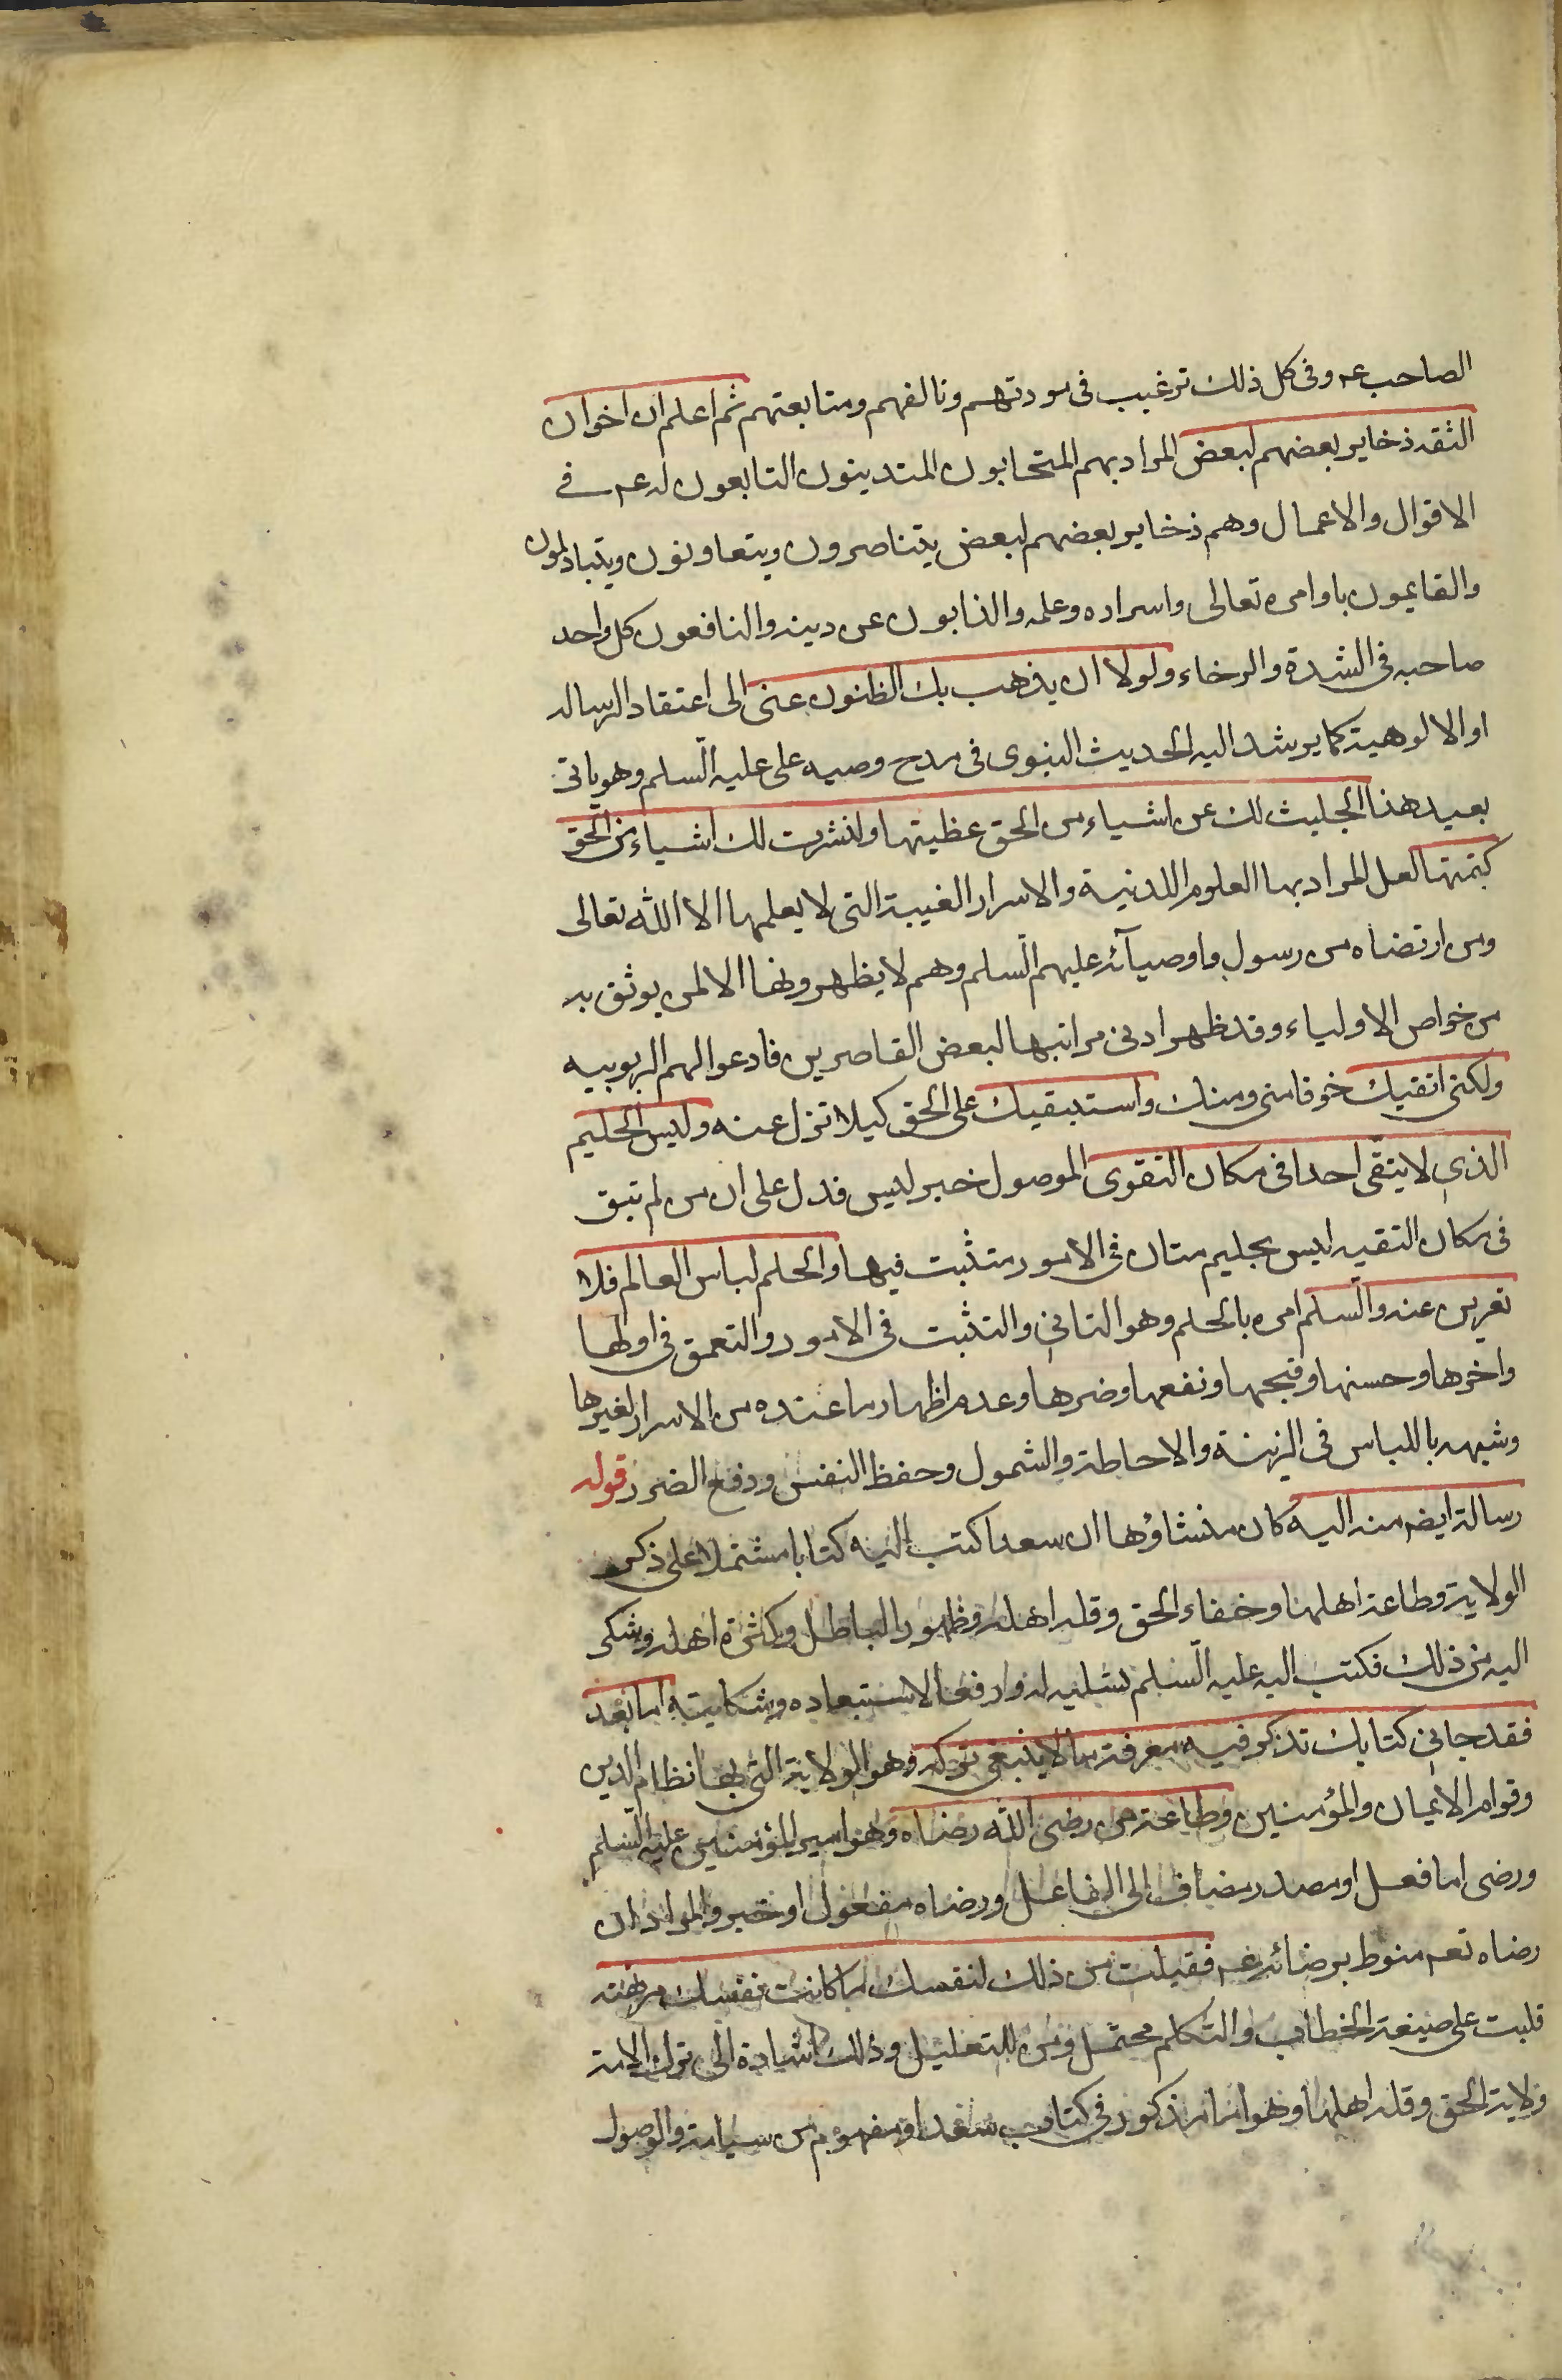 الصاحب عه وفى كل ذلك ترغيب فى مودتهم وتالفهم ومتابعتهم ثم اعلم ان اخوان
الثقه ذخاير بعضهم لبعض المراد بهم المتحابون المتدينون التابعون له عه فى
الاقوال والاعمال وهم ذخاير بعضهم لبعض يتناصرون ويتعاونون ويتبادلون
والقايمون باوامره تعالى واسراره وعلمه والذابون عن دينه والنافعون كل واحد
صاحبه فى الشدة والرخاء ولولا ان يذهب بك الظنون عنى الى اعتقاد الرساله
او الالوهية كما يرشد اليه الحديث النبوى فى مدح وصيه على عليه السلم وهو ياتى
بعيد هذا لجليت لك عن اشياء من الحق غطيتها ولنشرت لك اشياء من الحق
كتمتها لعل المراد بها العلوم اللدنية والاسرار الغيبة التى لا يعلمها الا الله تعالى
ومن ارتضاه من رسول واوصيآئه عليهم السلم وهم لا يظهرونها الا لمن يوثق به
من خواص الاولياء وقد ظهر ادنى مراتبها لبعض القاصرين فادعوا لهم الربوبيه
ولكنى اتقيك خوفا منى ومنك واستبقيك على الحق كيلا تزل عنه وليس الحليم
الذى لا يتقى احدا فى مكان التقوى الموصول خبر ليس فدل على ان من لم يتق
فى مكان التقيه ليس بحليم متان فى الامور متثبت فيها والحلم لباس العالم فلا
تعرين عنه والسلم امره بالحلم وهو التانى والتثبت فى الامور والتعمق فى اولها
واخرها وحسنها وقبحها ونفعها وضرها وعدم اظهار ما عنده من الاسرار لغيرها
وشبهه باللباس فى الزينة والاحاطة والشمول وحفظ النفس ودفع الضرر قوله
رسالة ايضه منه اليه كان منشاؤها ان سعدا كتب اليه كتابا مشتملا على ذكر
الولاية وطاعة اهلها وخفاء الحق وقله اهله وظهور الباطل وكثرة اهله وشكى
اليه من ذلك فكتب اليه عليه السلم تسليه له ودفعا لاستبعاده وشكايته اما بعد
فقد جانى كتابك تذكر فيه معرفة ما لا ينبغى تركه وهو الولاية التى بها نظام الدين
وقوام الايمان والمؤمنين وطاعة من رضى الله رضاه وهو امير المؤمنين عليه السلم
ورضى اما فعل او مصدر مضاف الى الفاعل ورضاه مفعول او خبر والمراد ان
رضاه تعه منوط برضائه عه فقبلت من ذلك لنفسك ما كانت نفسك مرتهنه
قلبت على صيغة الخطاب والتكلم محتمل ومن للتعليل وذلك اشارة الى ترك الامة
ولاية الحق وقله اهلها وهو اما مذكور فى كتاب سعد او مفهوم من سياقه والوصول